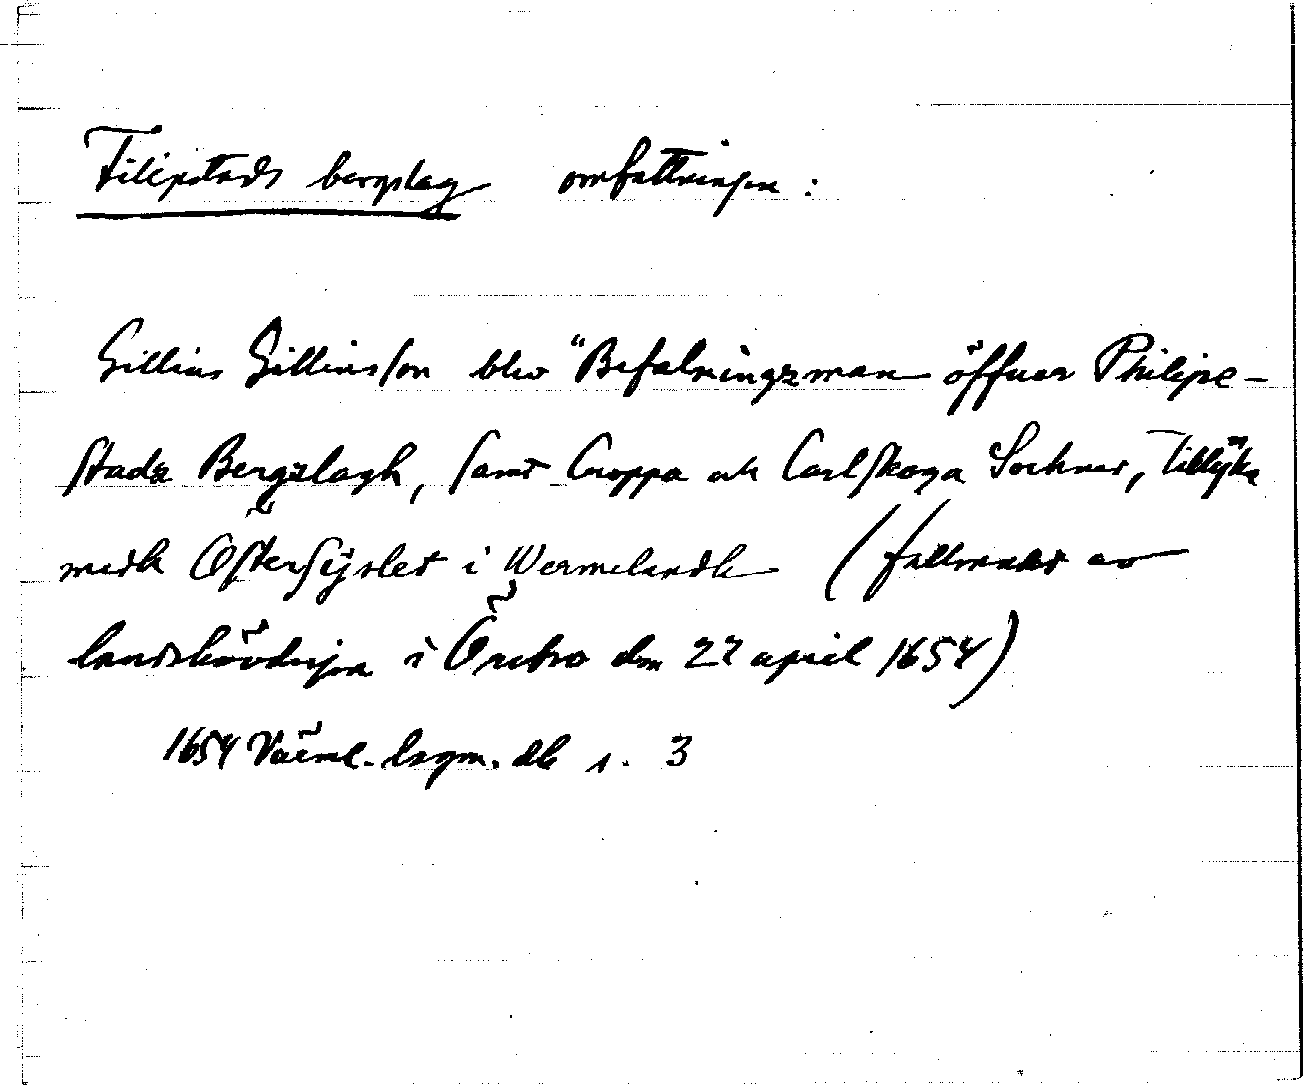 Filipstads bergslag omfattningen :
Gillius Gilliusson blev "Befalningzman öffuer Philipe-
stadz Bergzlagh, samt Croppa och Carlskoga Sochner, Tillijka
medh Östersÿslet i Wermelandh (fullmakt av
landshövdingen i Örebro den 22 april 1654)
1654 Värml. lsgm. db s. 3